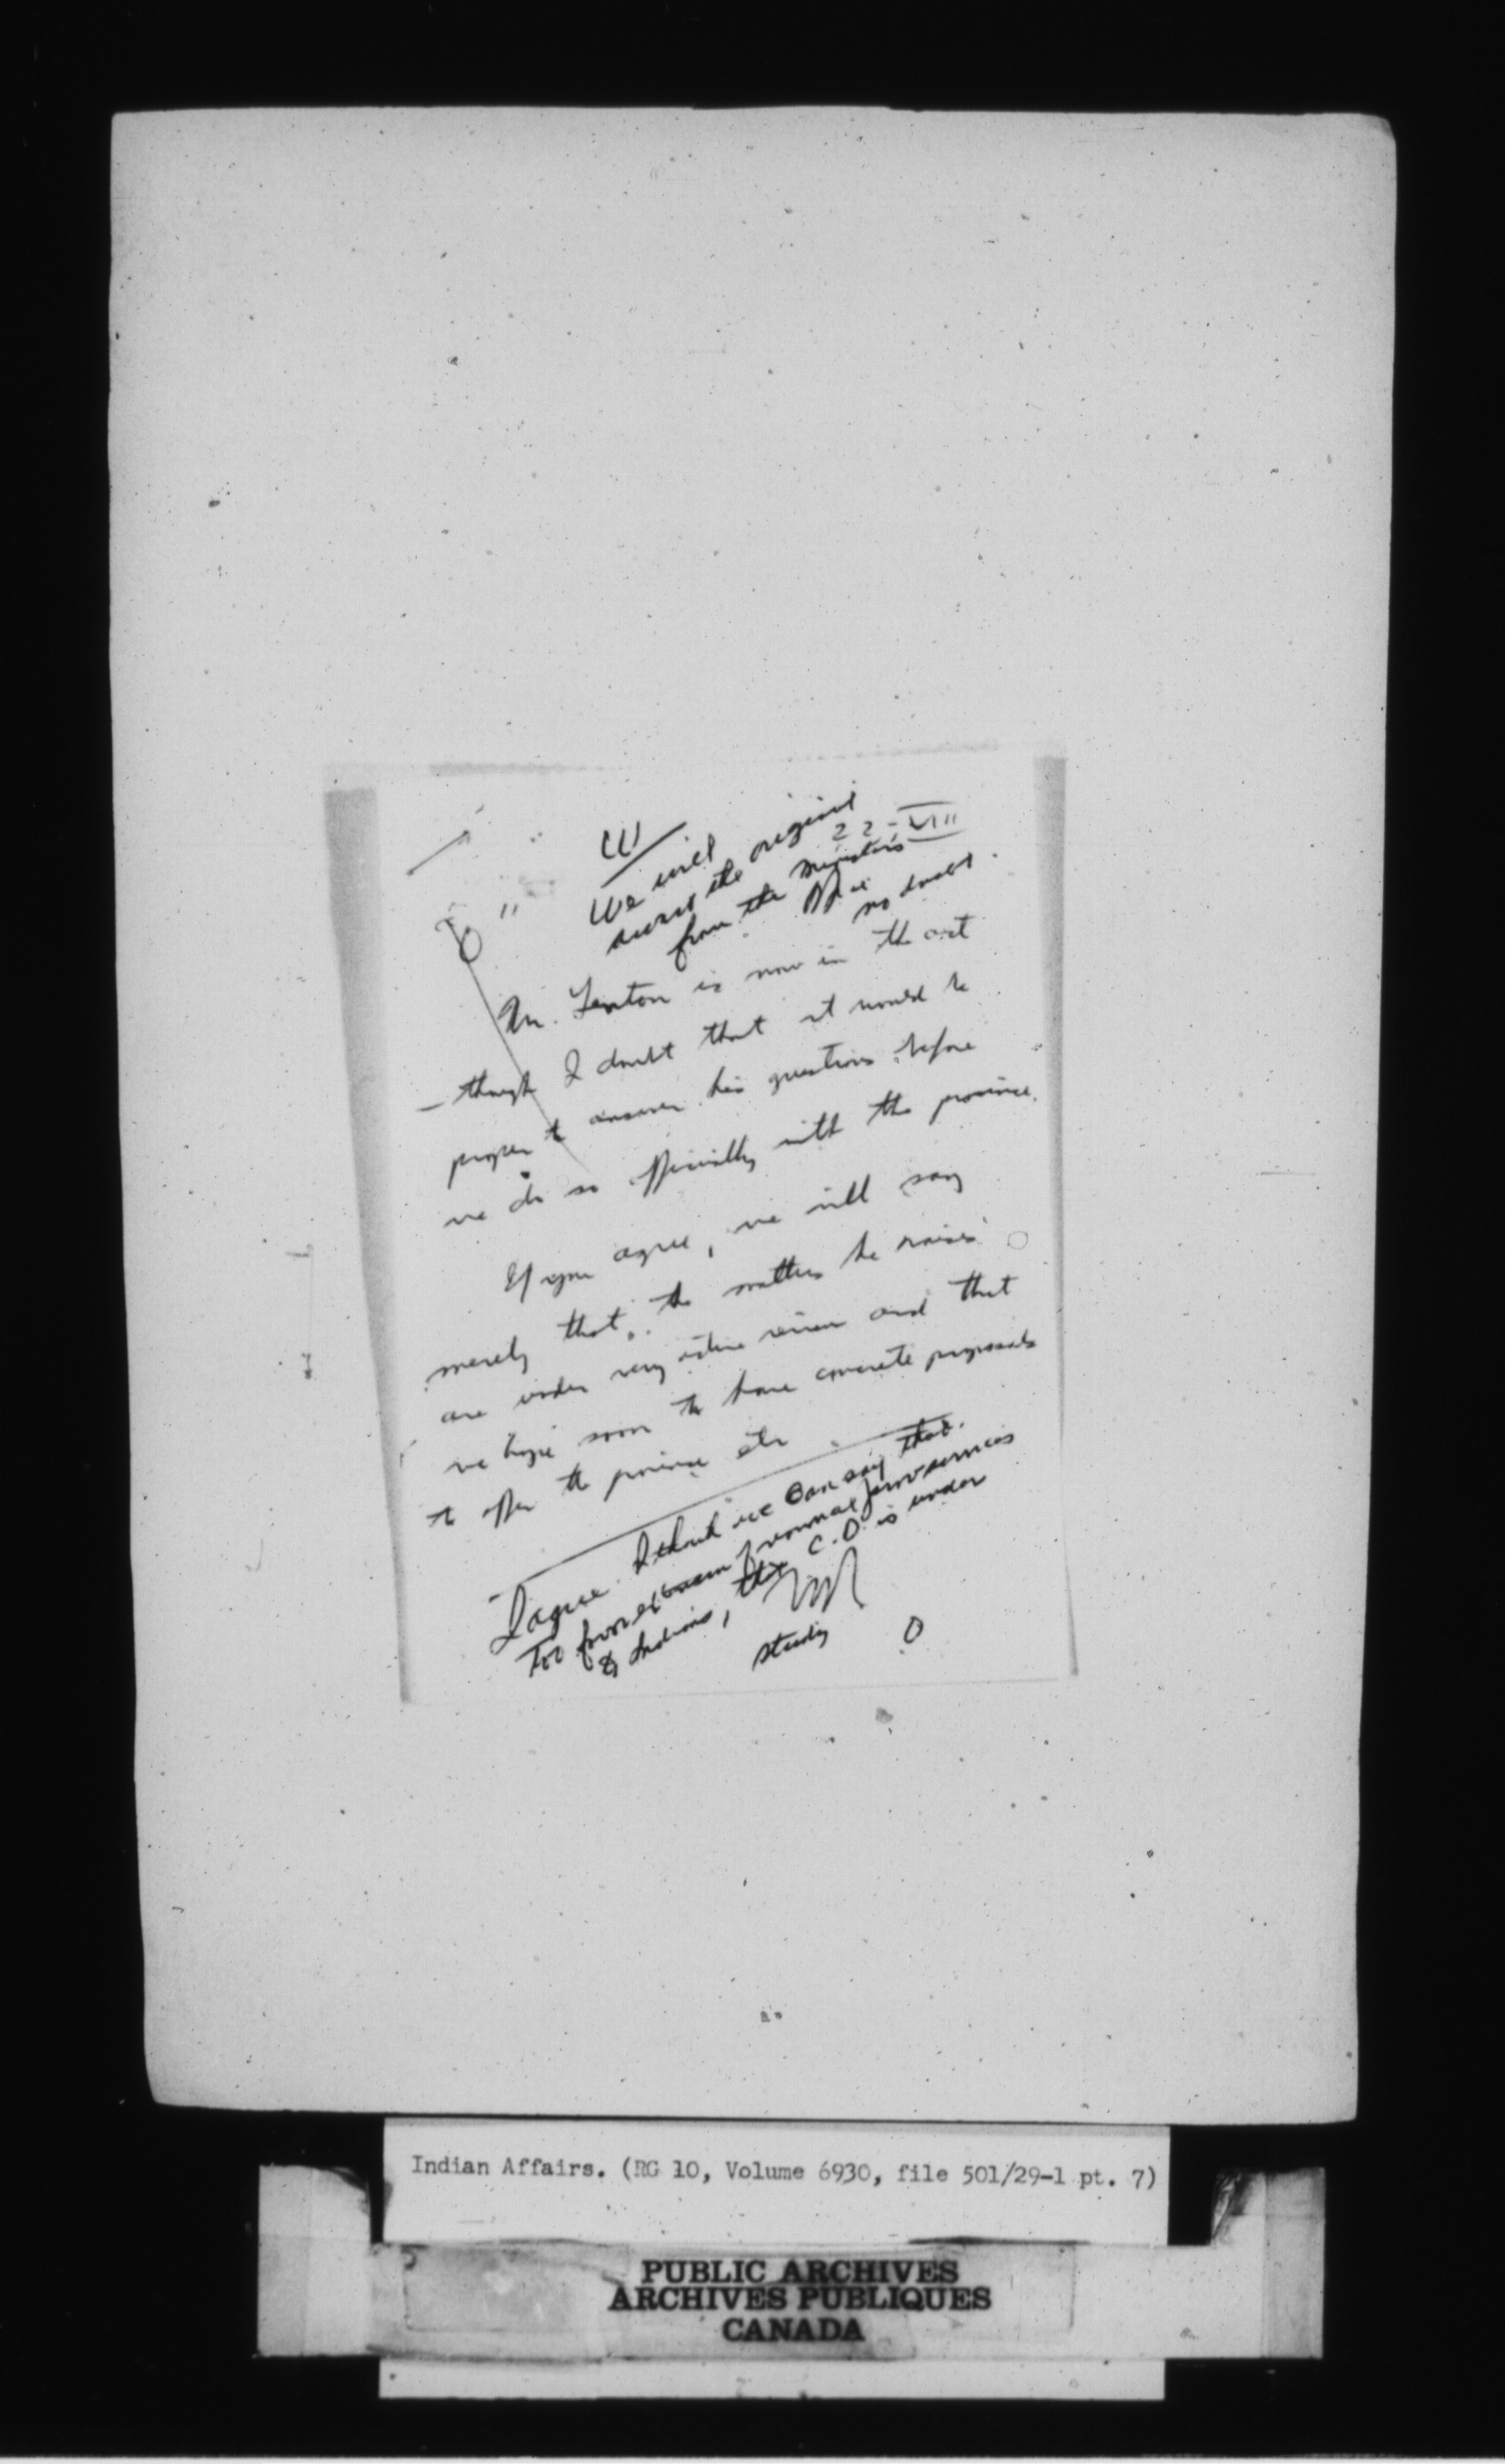 We will
22-VIII
secure the original
from the Minister's
office no doubt.
Mr. Fenton is now in the act
— though I doubt that it would be
proper to answer his questions before
we do so officially with the province.
If you agree, we will say
merely that the matters he raises
are under very active review and that
we hope soon to have concrete proposals
to offer the province etc
I agree. I think we can say that.
for extension of normal prov services
to Indians, the C.D. is under
study
Indian Affairs. (RG 10, Volume 6930, file 501/29-1 pt. 7)
PUBLIC ARCHIVES
ARCHIVES PUBLIQUES
CANADA